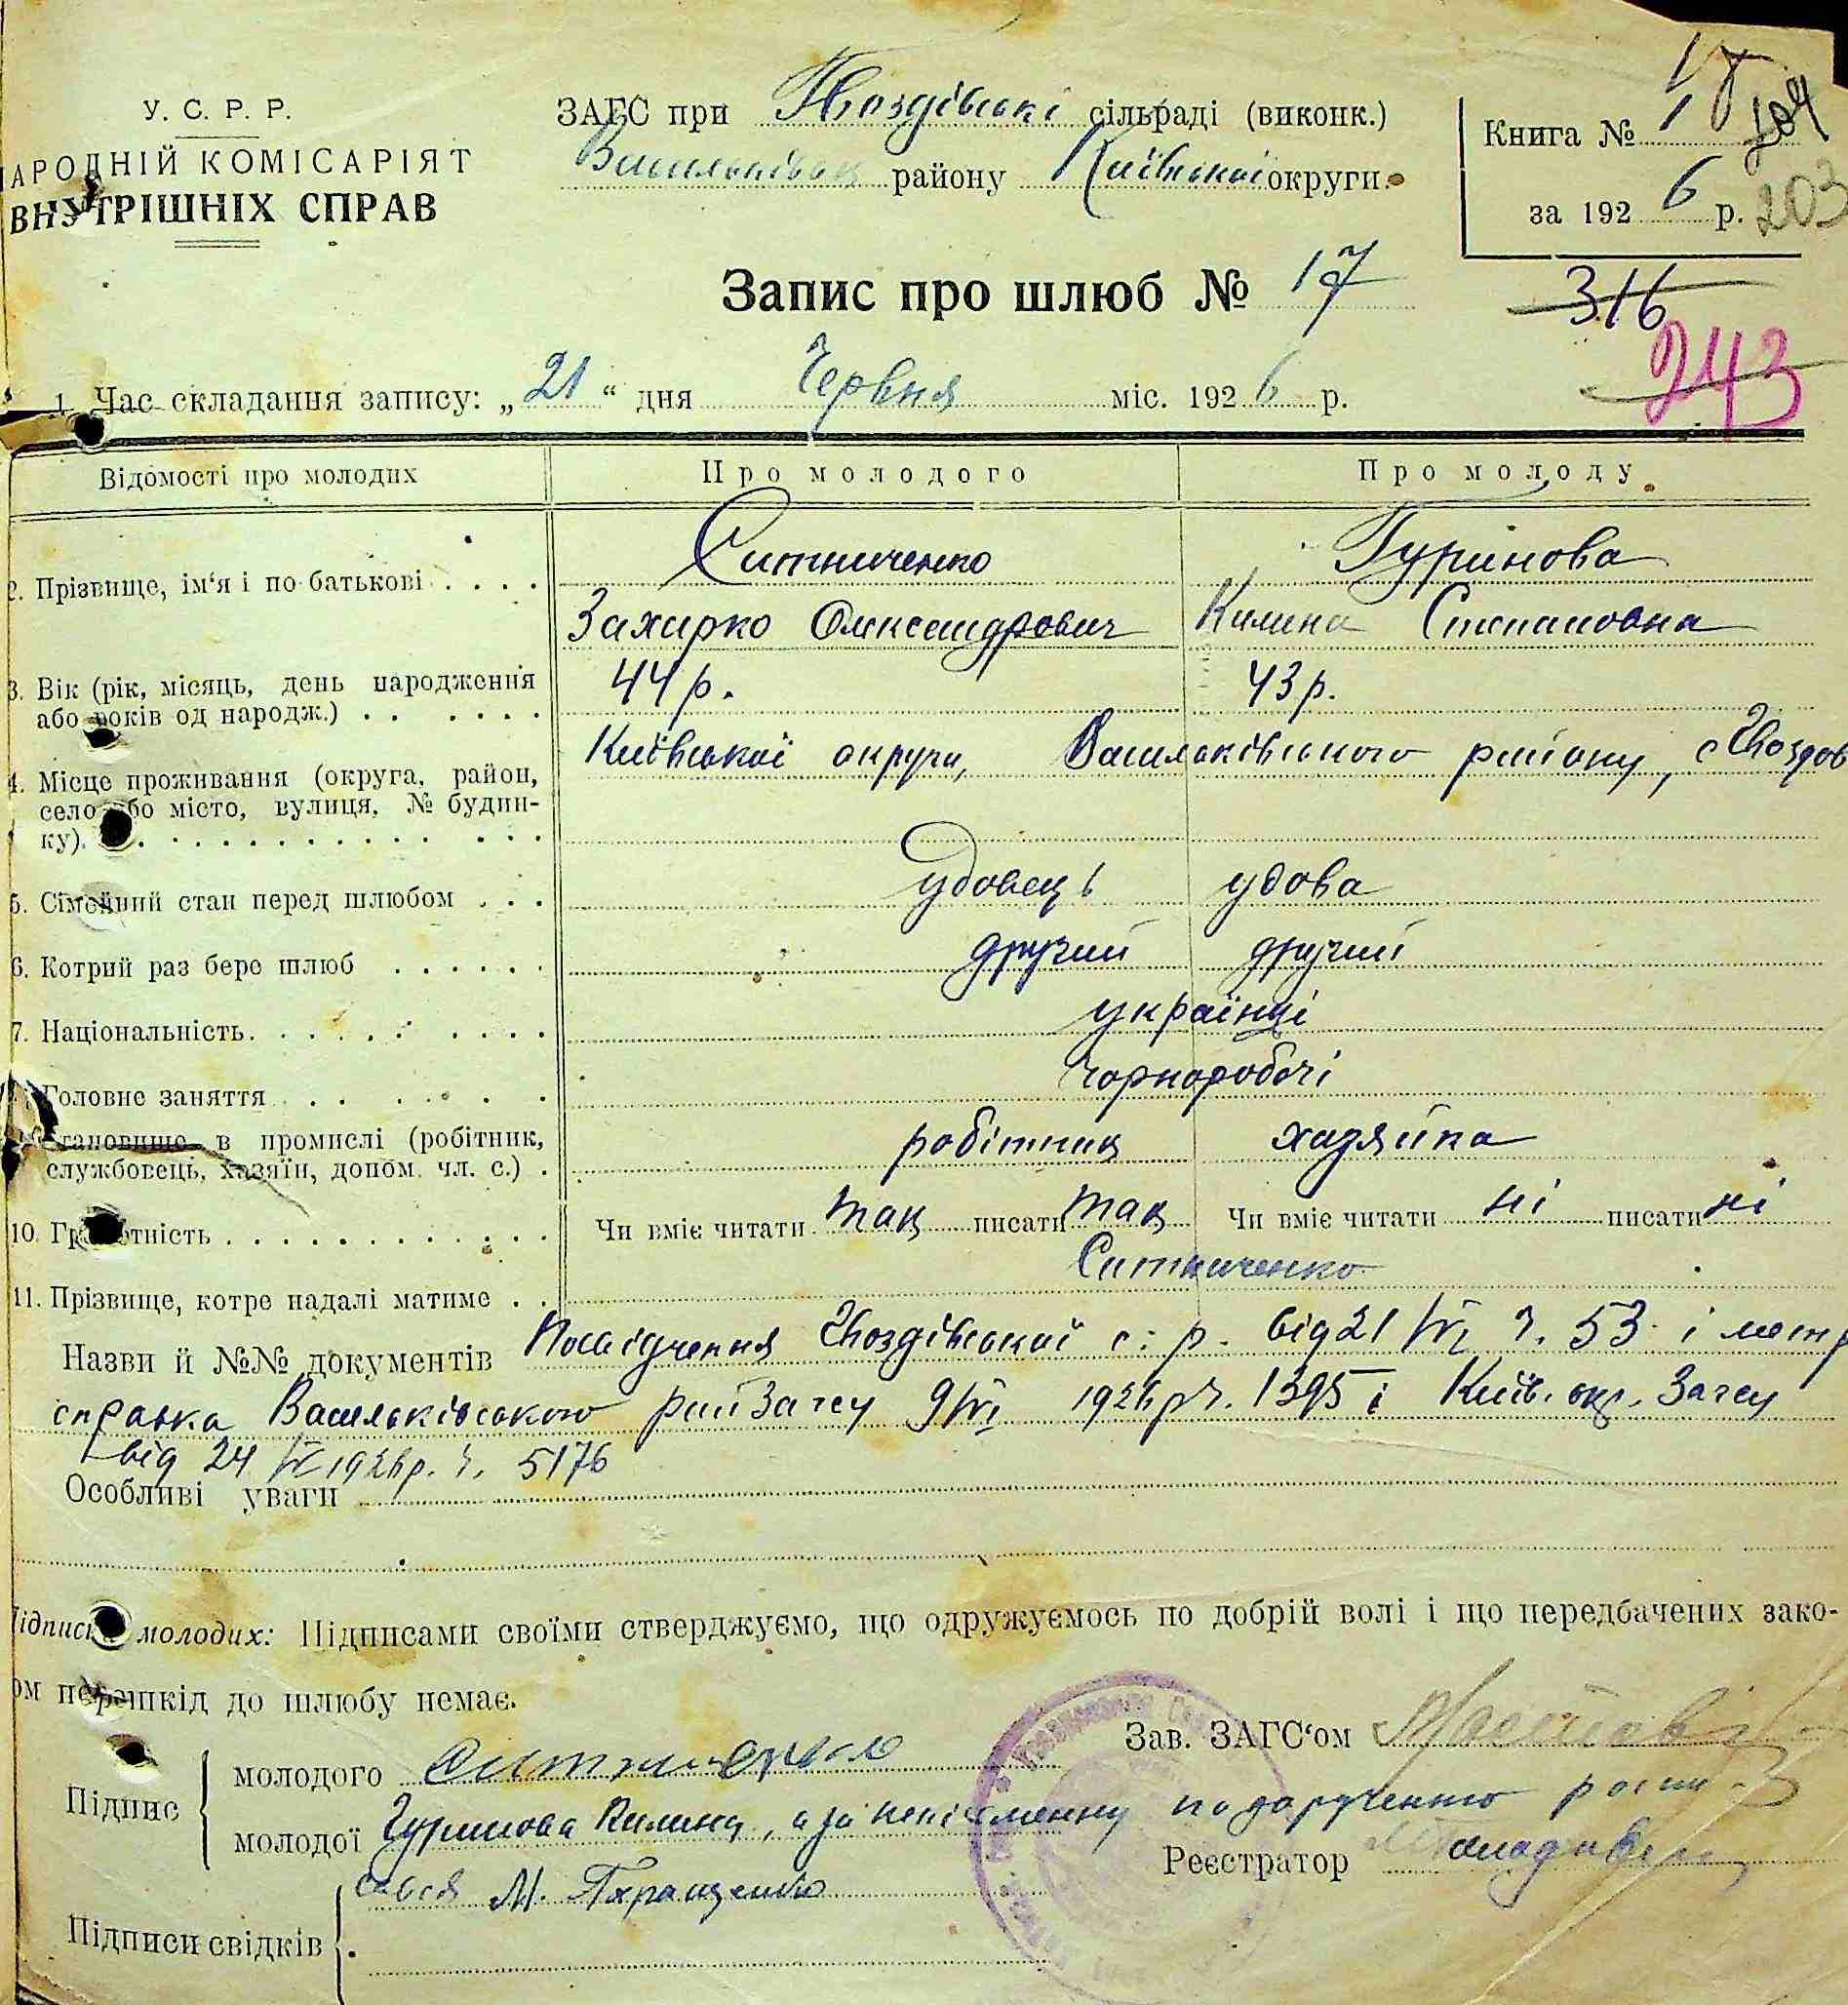 У. С. Р. Р.
АРОДНІЙ КОМІСАРІЯТ
ВНУТРІШНІХ СПРАВ
ЗАГС при Гвоздівські сільраді (виконк.)
Васильківськ району Київської округи.
Книга № 1
за 1926 р.
17
204
203
Запис про шлюб № 17
316
243
1. Час складання запису: „21“ дня Червня міс. 1926 р.
Відомості про молодих
Про молодого
Про молоду
2. Прізвище, ім'я і по батькові . . . .
Ситниченко
Гурінова
Захарко Олександрович
Килина Степановна
3. Вік (рік, місяць, день народження
або років од народж.) . . . . . .
44 р.
43 р.
4. Місце проживання (округа, район,
село або місто, вулиця, № будин-
ку).
Київської округи, Васильківського району, с Гвоздов
5. Сімейний стан перед шлюбом . . .
удовець
удова
6. Котрий раз бере шлюб . . . . . .
другий
другий
7. Національність. . . . . . . . .
українці
Головне заняття
чорноробочі
становище в промислі (робітник,
службовець, хазяїн, допом. чл. с.) .
робітник
хазяйка
10. Грамотність . . . . . . . . . . . .
Чи вміє читати так писати так
Чи вміє читати ні писати ні
11. Прізвище, котре надалі матиме . .
Ситниченко
Назви й №№ документів Посвідчення Гвоздівської с. р. від 21/VI ч. 53 і метр
справка Васильківського райЗагсу 9/VI 1926 р ч. 1395 і Київ. окр. Загсу
від 24 1926 р. ч. 5176
Особливі уваги
Підписи молодих: Підписами своїми стверджуємо, що одружуємось по добрій волі і що передбачених зако-
ом перешкід до шлюбу немає.
Зав. ЗАГС‘ом
Підпис
молодого Ситниченко
молодої Гурінова Килина, а за неписьменну по дорученню розпи-
Реєстратор
сався М. Таращенко
Підписи свідків